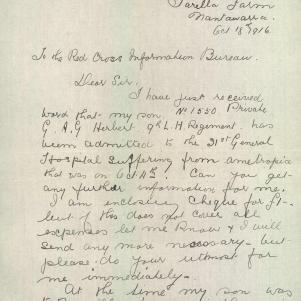 Tarella Farm
Nantawarra.
Oct 18 1916.
To the Red Cross Information Bureau.
Dear Sir.
I have just received
word that my son. No 1550 Private
G. A. G Herbert 9th L. H. Regiment. has
been admitted to the 31st General
Hospital suffering from ametropia
that was on Oct 11th! Can you get
any further information for me.
I am enclosing cheque for £1-
but if this does not cover all
expenses let me know & I will
send any more necessary- but
please do your utmost for
me immediately.-
At the time my son was